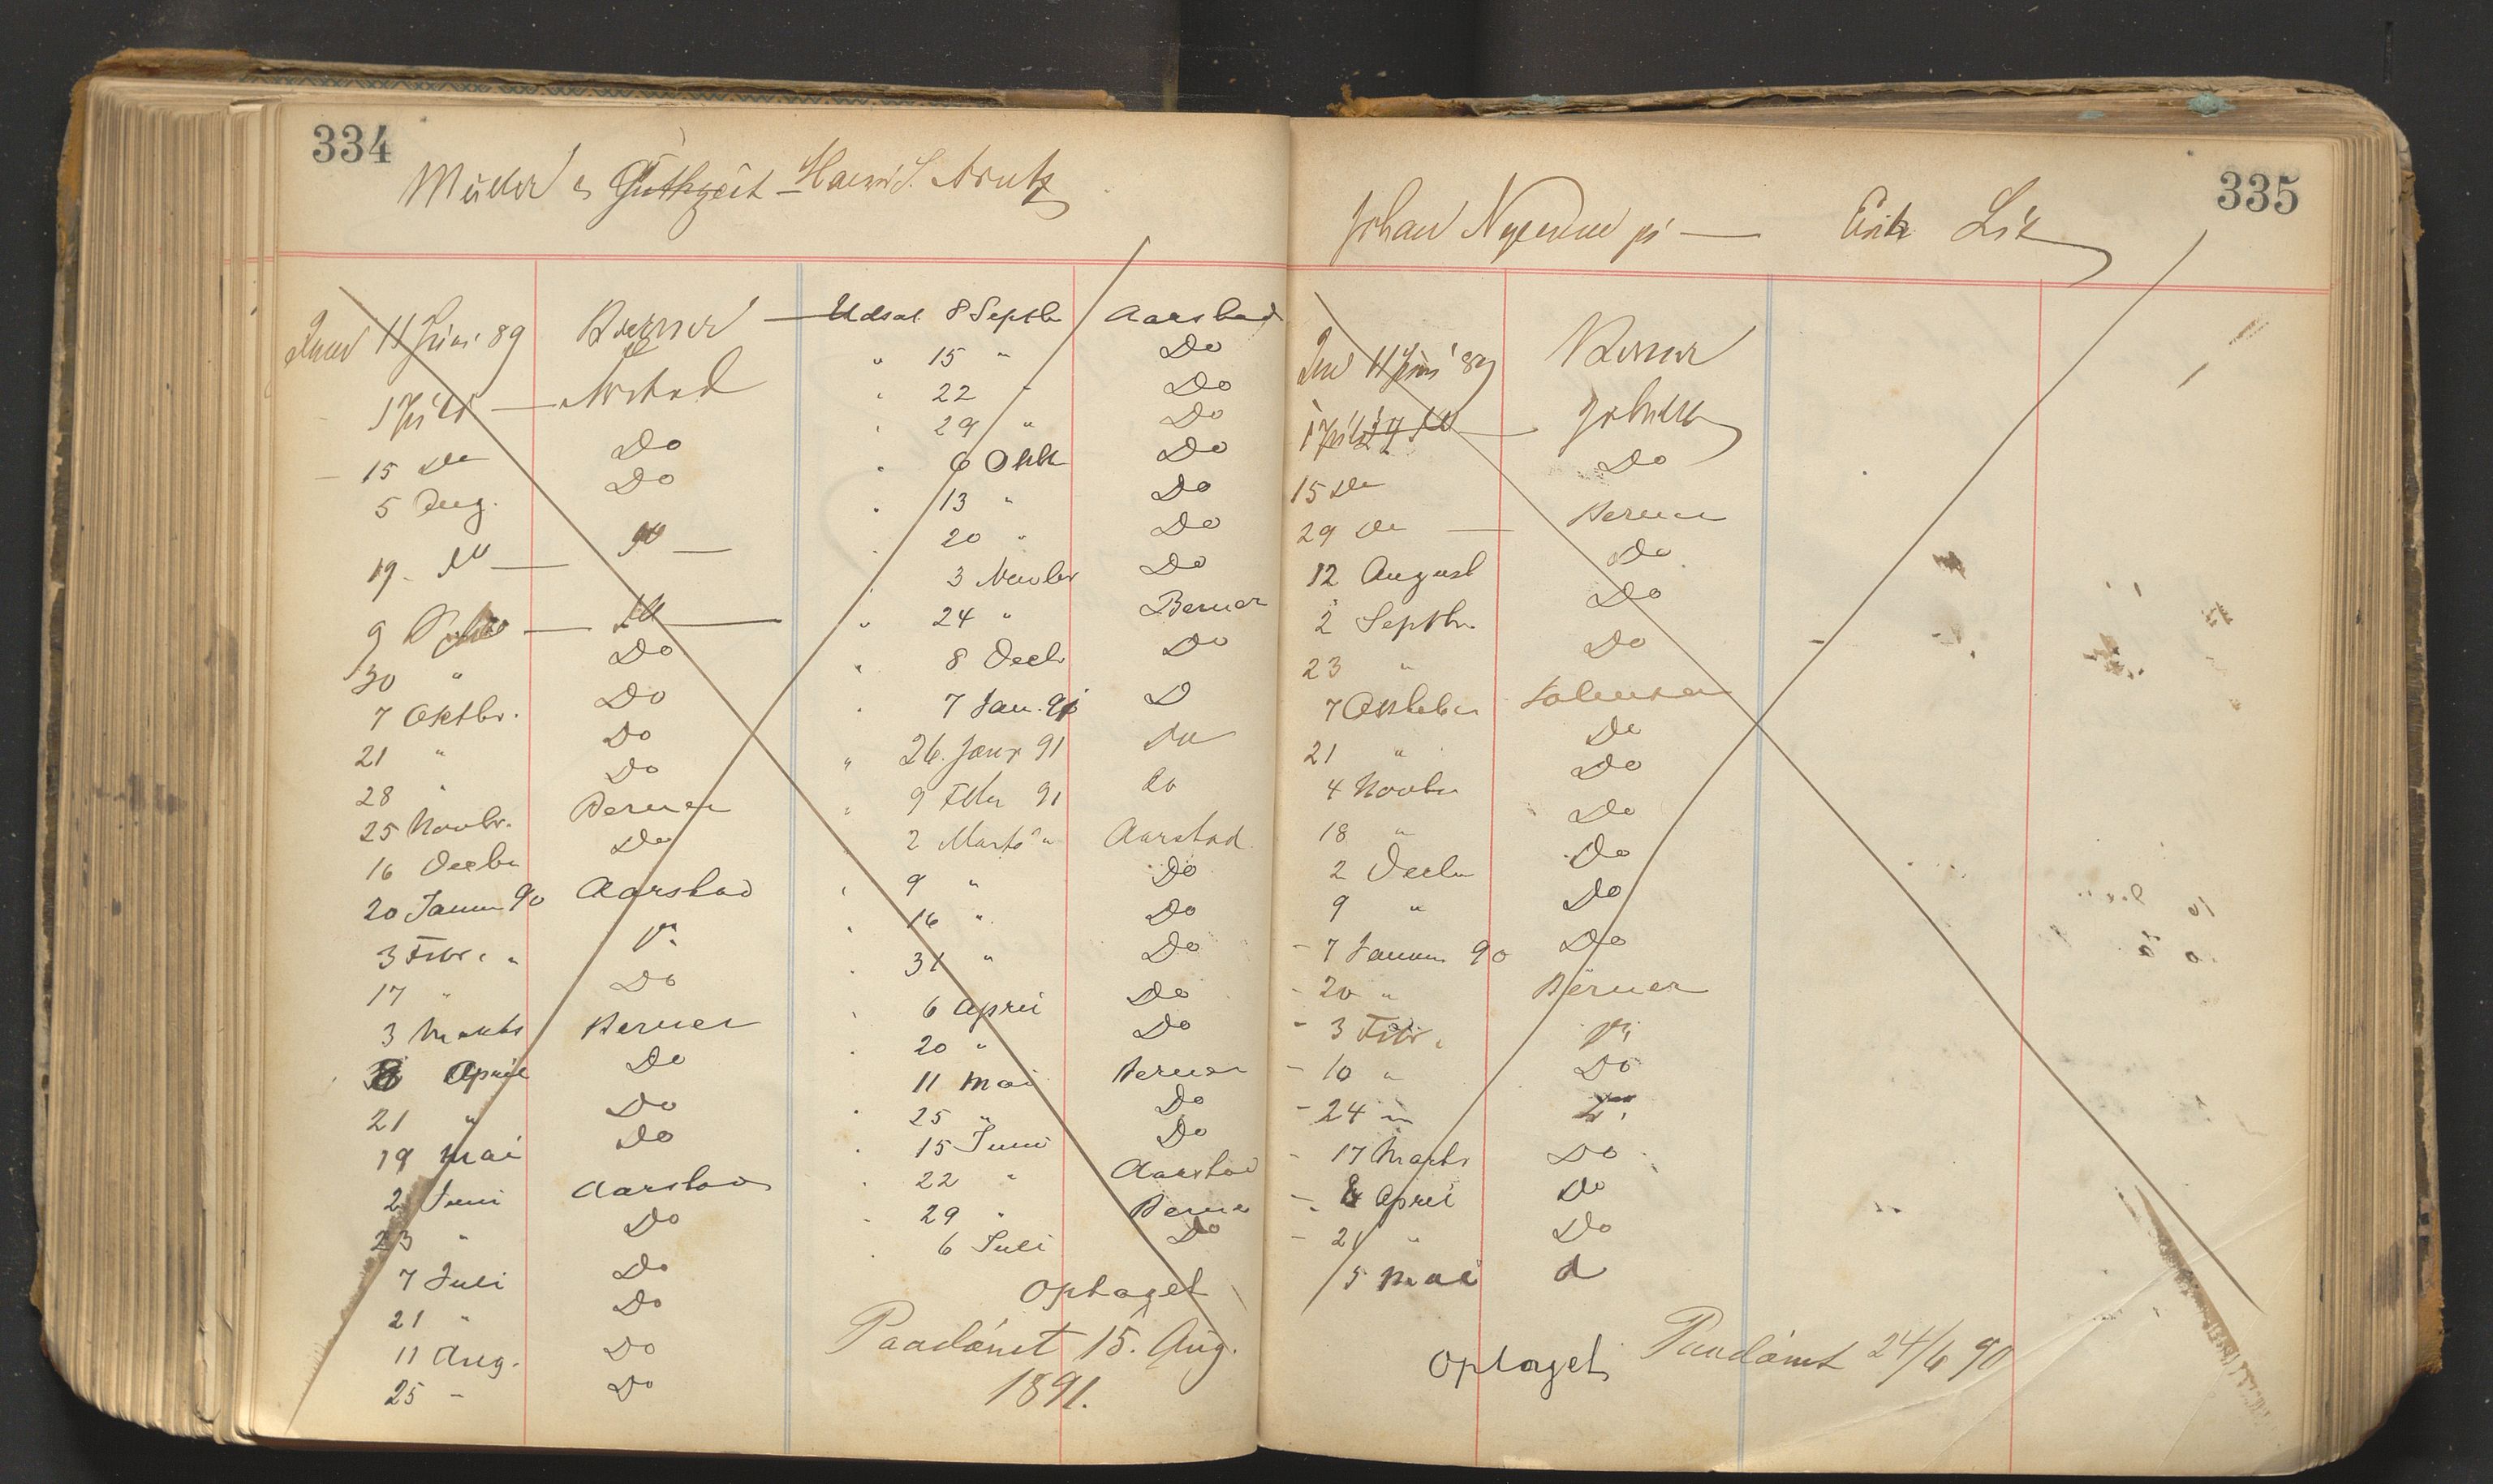 334
Müller & Guthzeit – Arntz
11 Juni 89 Berner
1 Juli — Arstad
15 Do Do
5 Aug. Do
19 Do — Do —
9 — Do —
30 " Do
7 Oktbr. Do
21 " Do
28 " Do
25 Novbr. Berner
16 Decbr Do
20 Januar 90 Aarstad
3 Febr. "
17 " Do
3 Marts Berner
8 April Do
21 " Do
19 Mai Do
2 Juni Aarstad
23 " Do
7 Juli Do
21 " Do
11 Aug. Do
25 – Do
Udsat 8 Septbr Aarstad
" 15 " Do
" 22 " Do
" 29 " Do
" 6 Oktbr Do
" 13 " Do
" 20 " Do
" 3 Novbr Do
" 24 " Berner
" 8 Decbr Do
" 7 Jan. 91 D
" 26. Janr 91 Do
" 9 Febr 91 do
" 2 Marts " Aarstad
" 9 " Do
" 16 " Do
" 31 " Do
" 6 April Do
" 20 " Do
11 Mai Berner
" 25 " Do
" 15 Juni Do
" 22 " Aarstad
" 29 " Berner
" 6 Juli Do
Optaget
Paadömt 15. Aug.
1891.
335
Johan — Erik
11 Juni 89 Berner
1 Juli
15 Do Do
29 Do — Berner
12 August Do
2 Septbr. Do
23 " Do
7 Oktober Johnsen
21 " Do
4 Novbr Do
18 " Do
2 Decbr Do
9 " Do
– 7 Januar 90 Do
– 20 " Berner
– 3 Febr.
– 10 " Do
– 24 "
– 17 Marts Do
– 8 April Do
– 21 " Do
5 Mai d
Optaget Paadömt 24/6 90